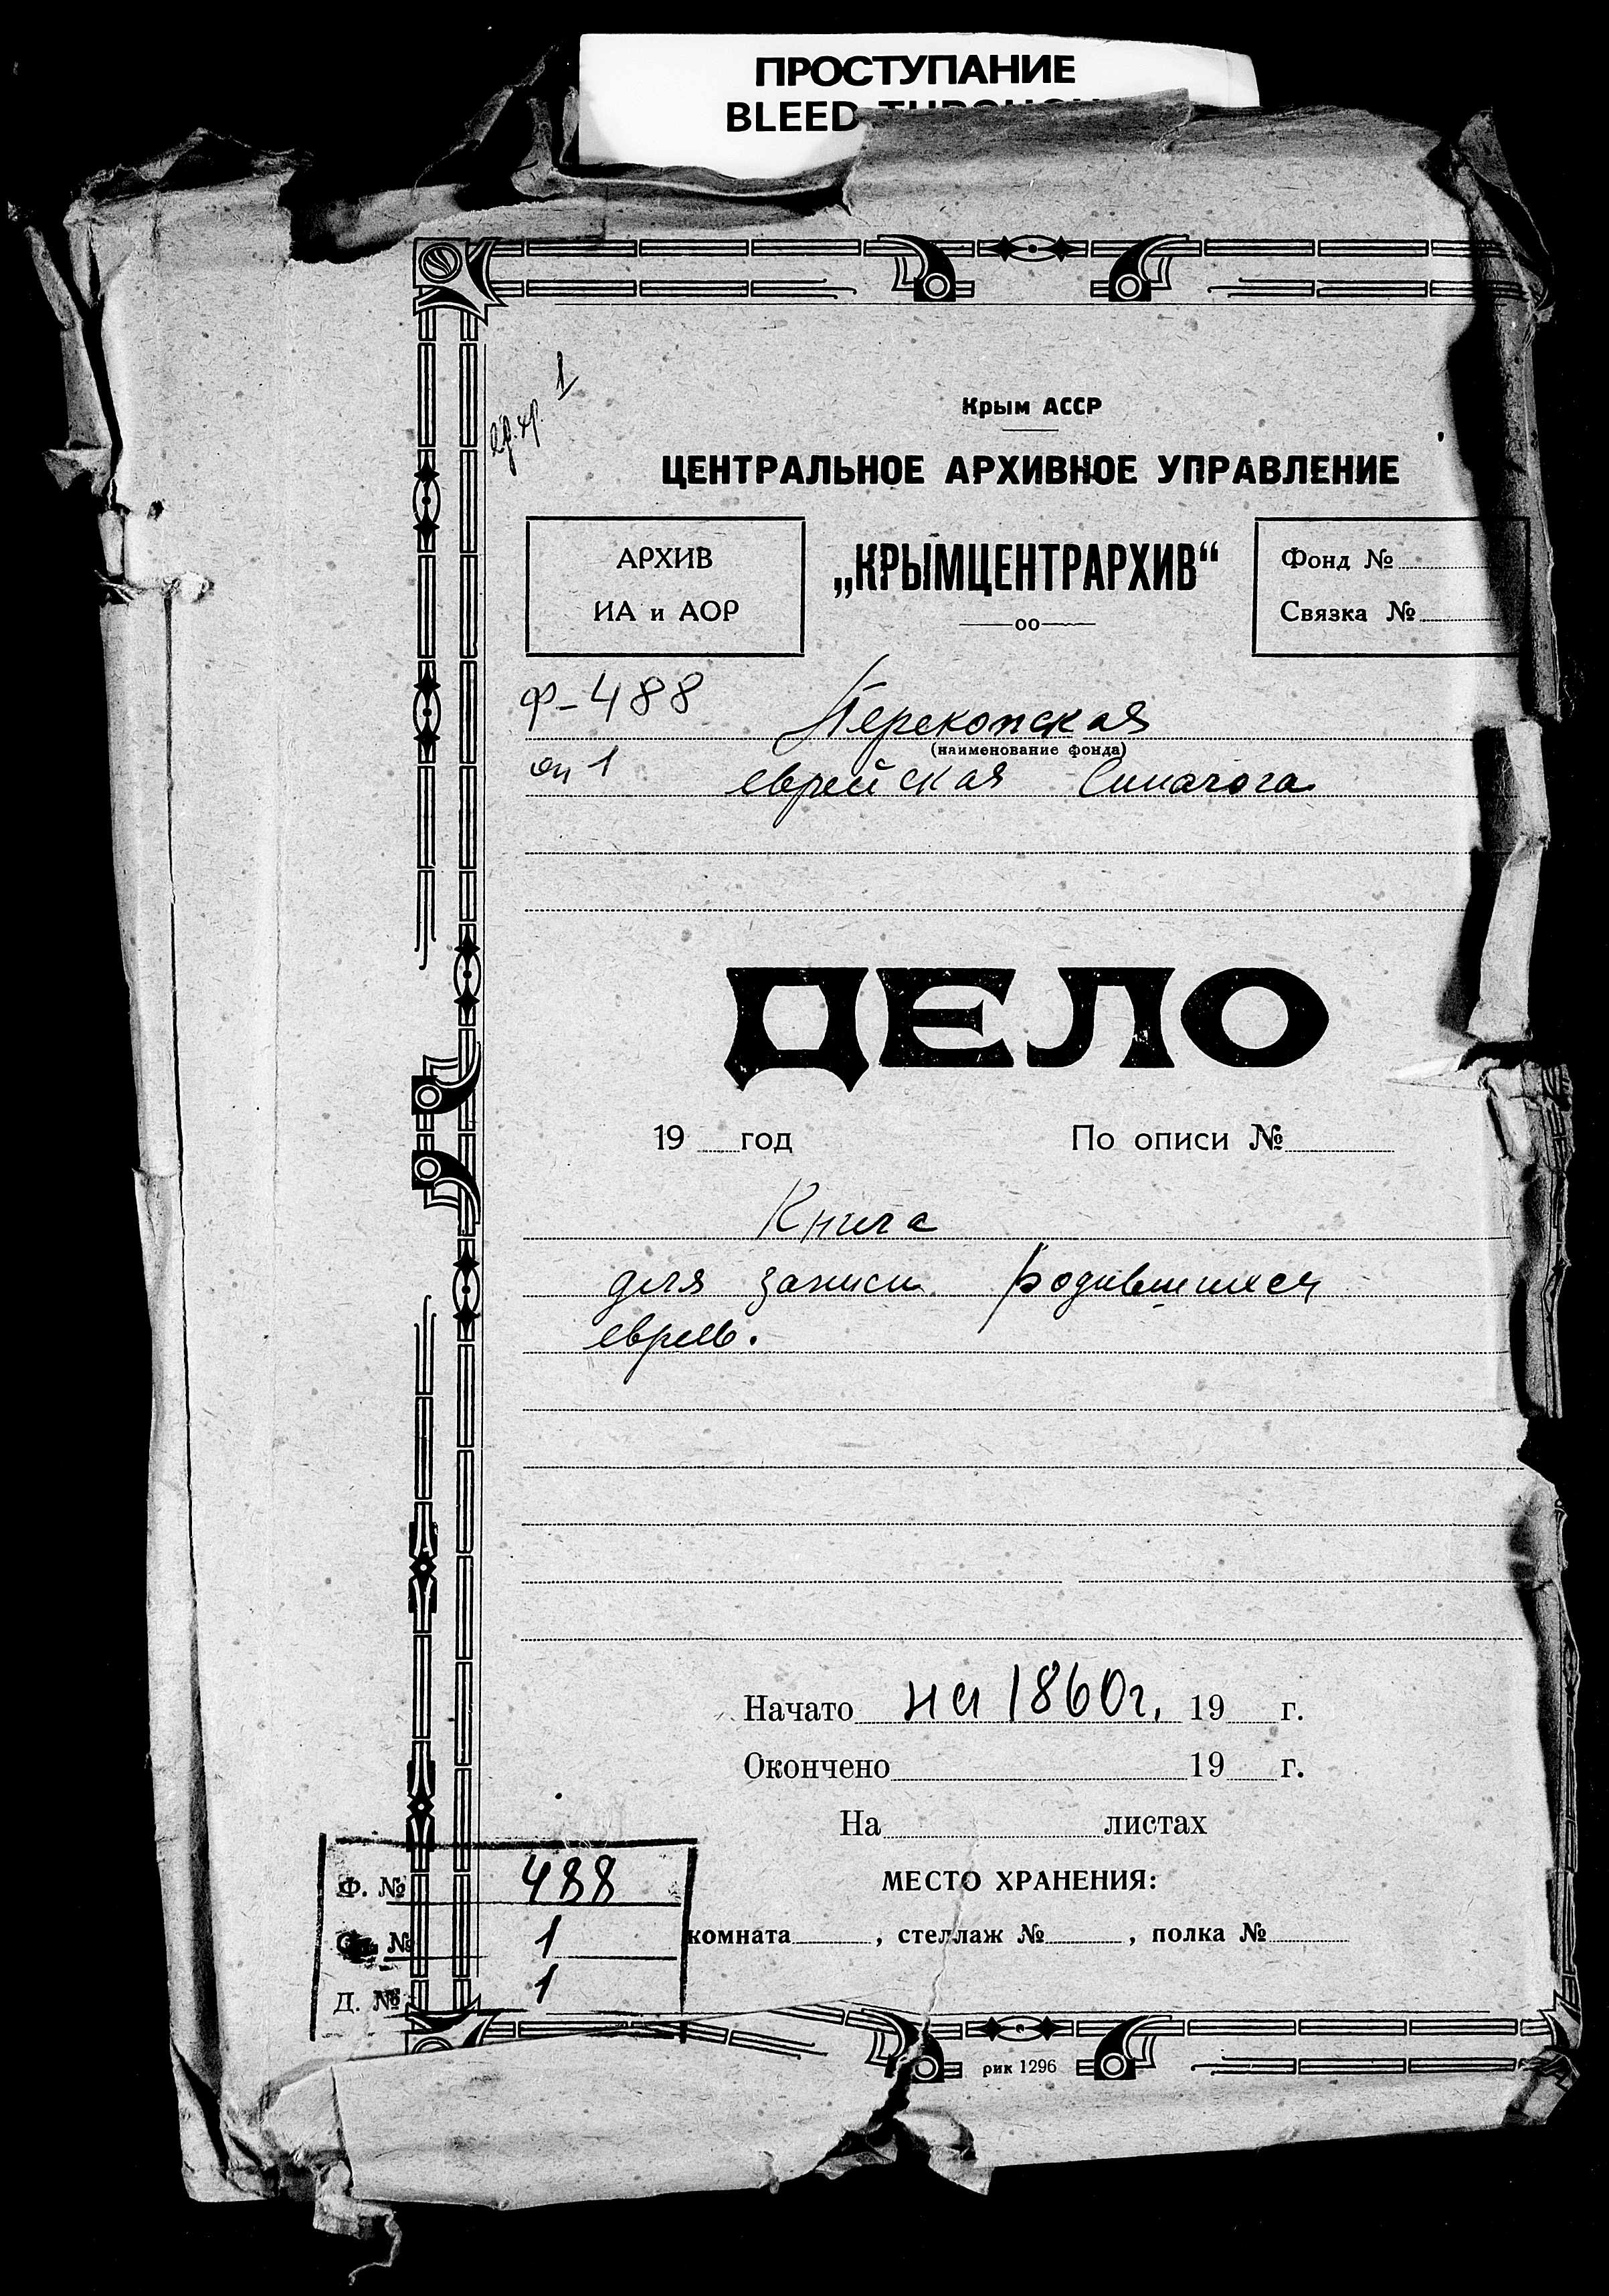 ПРОСТУПАНИЕ
BLEED THROUGH
1
Крым АССР
ЦЕНТРАЛЬНОЕ АРХИВНОЕ УПРАВЛЕНИЕ
АРХИВ
ИА и АОР
„КРЫМЦЕНТРАРХИВ“
Фонд №
Связка №
Ф-488
Перекопская
(наименование фонда)
оп 1 еврейская Синагога
ДЕЛО
19 год По описи №
Книга
для записи родившихся
евреев.
Начато на 1860г. 19 г.
Окончено 19 г.
На листах
МЕСТО ХРАНЕНИЯ:
комната , стеллаж № , полка №
Ф. № 488
№ 1
Д. № 1
рик 1296